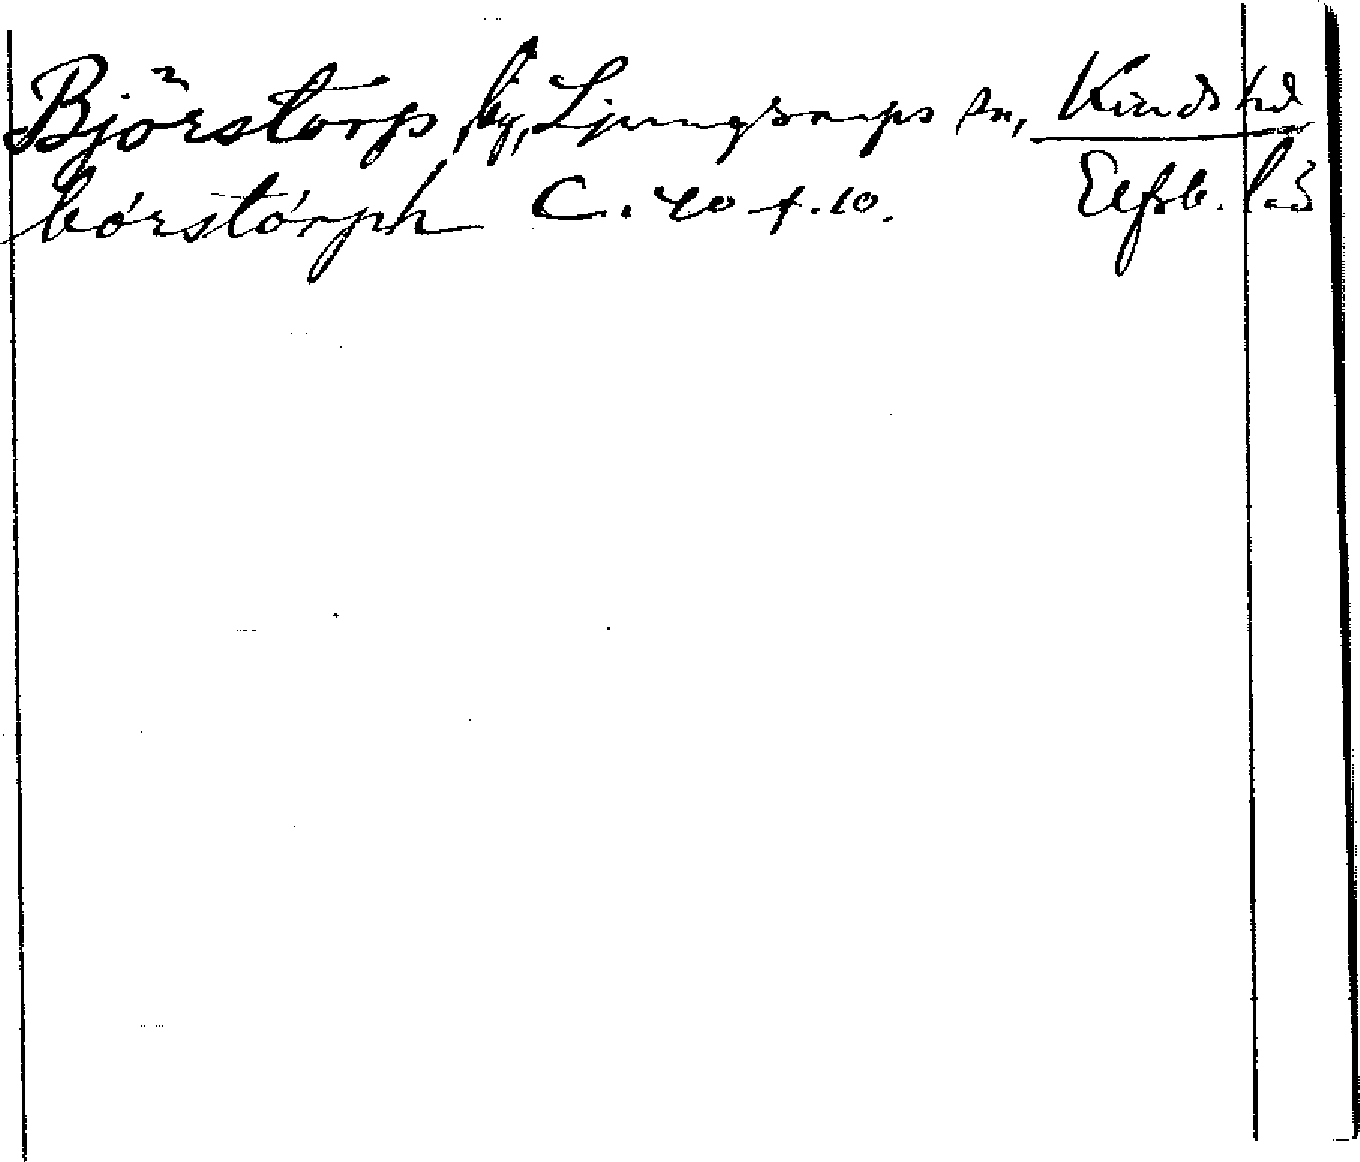 Björstorp, by, Ljungsarps sn, Kinds hd
bórstórph C. 40 f. 10. Elfsb. län